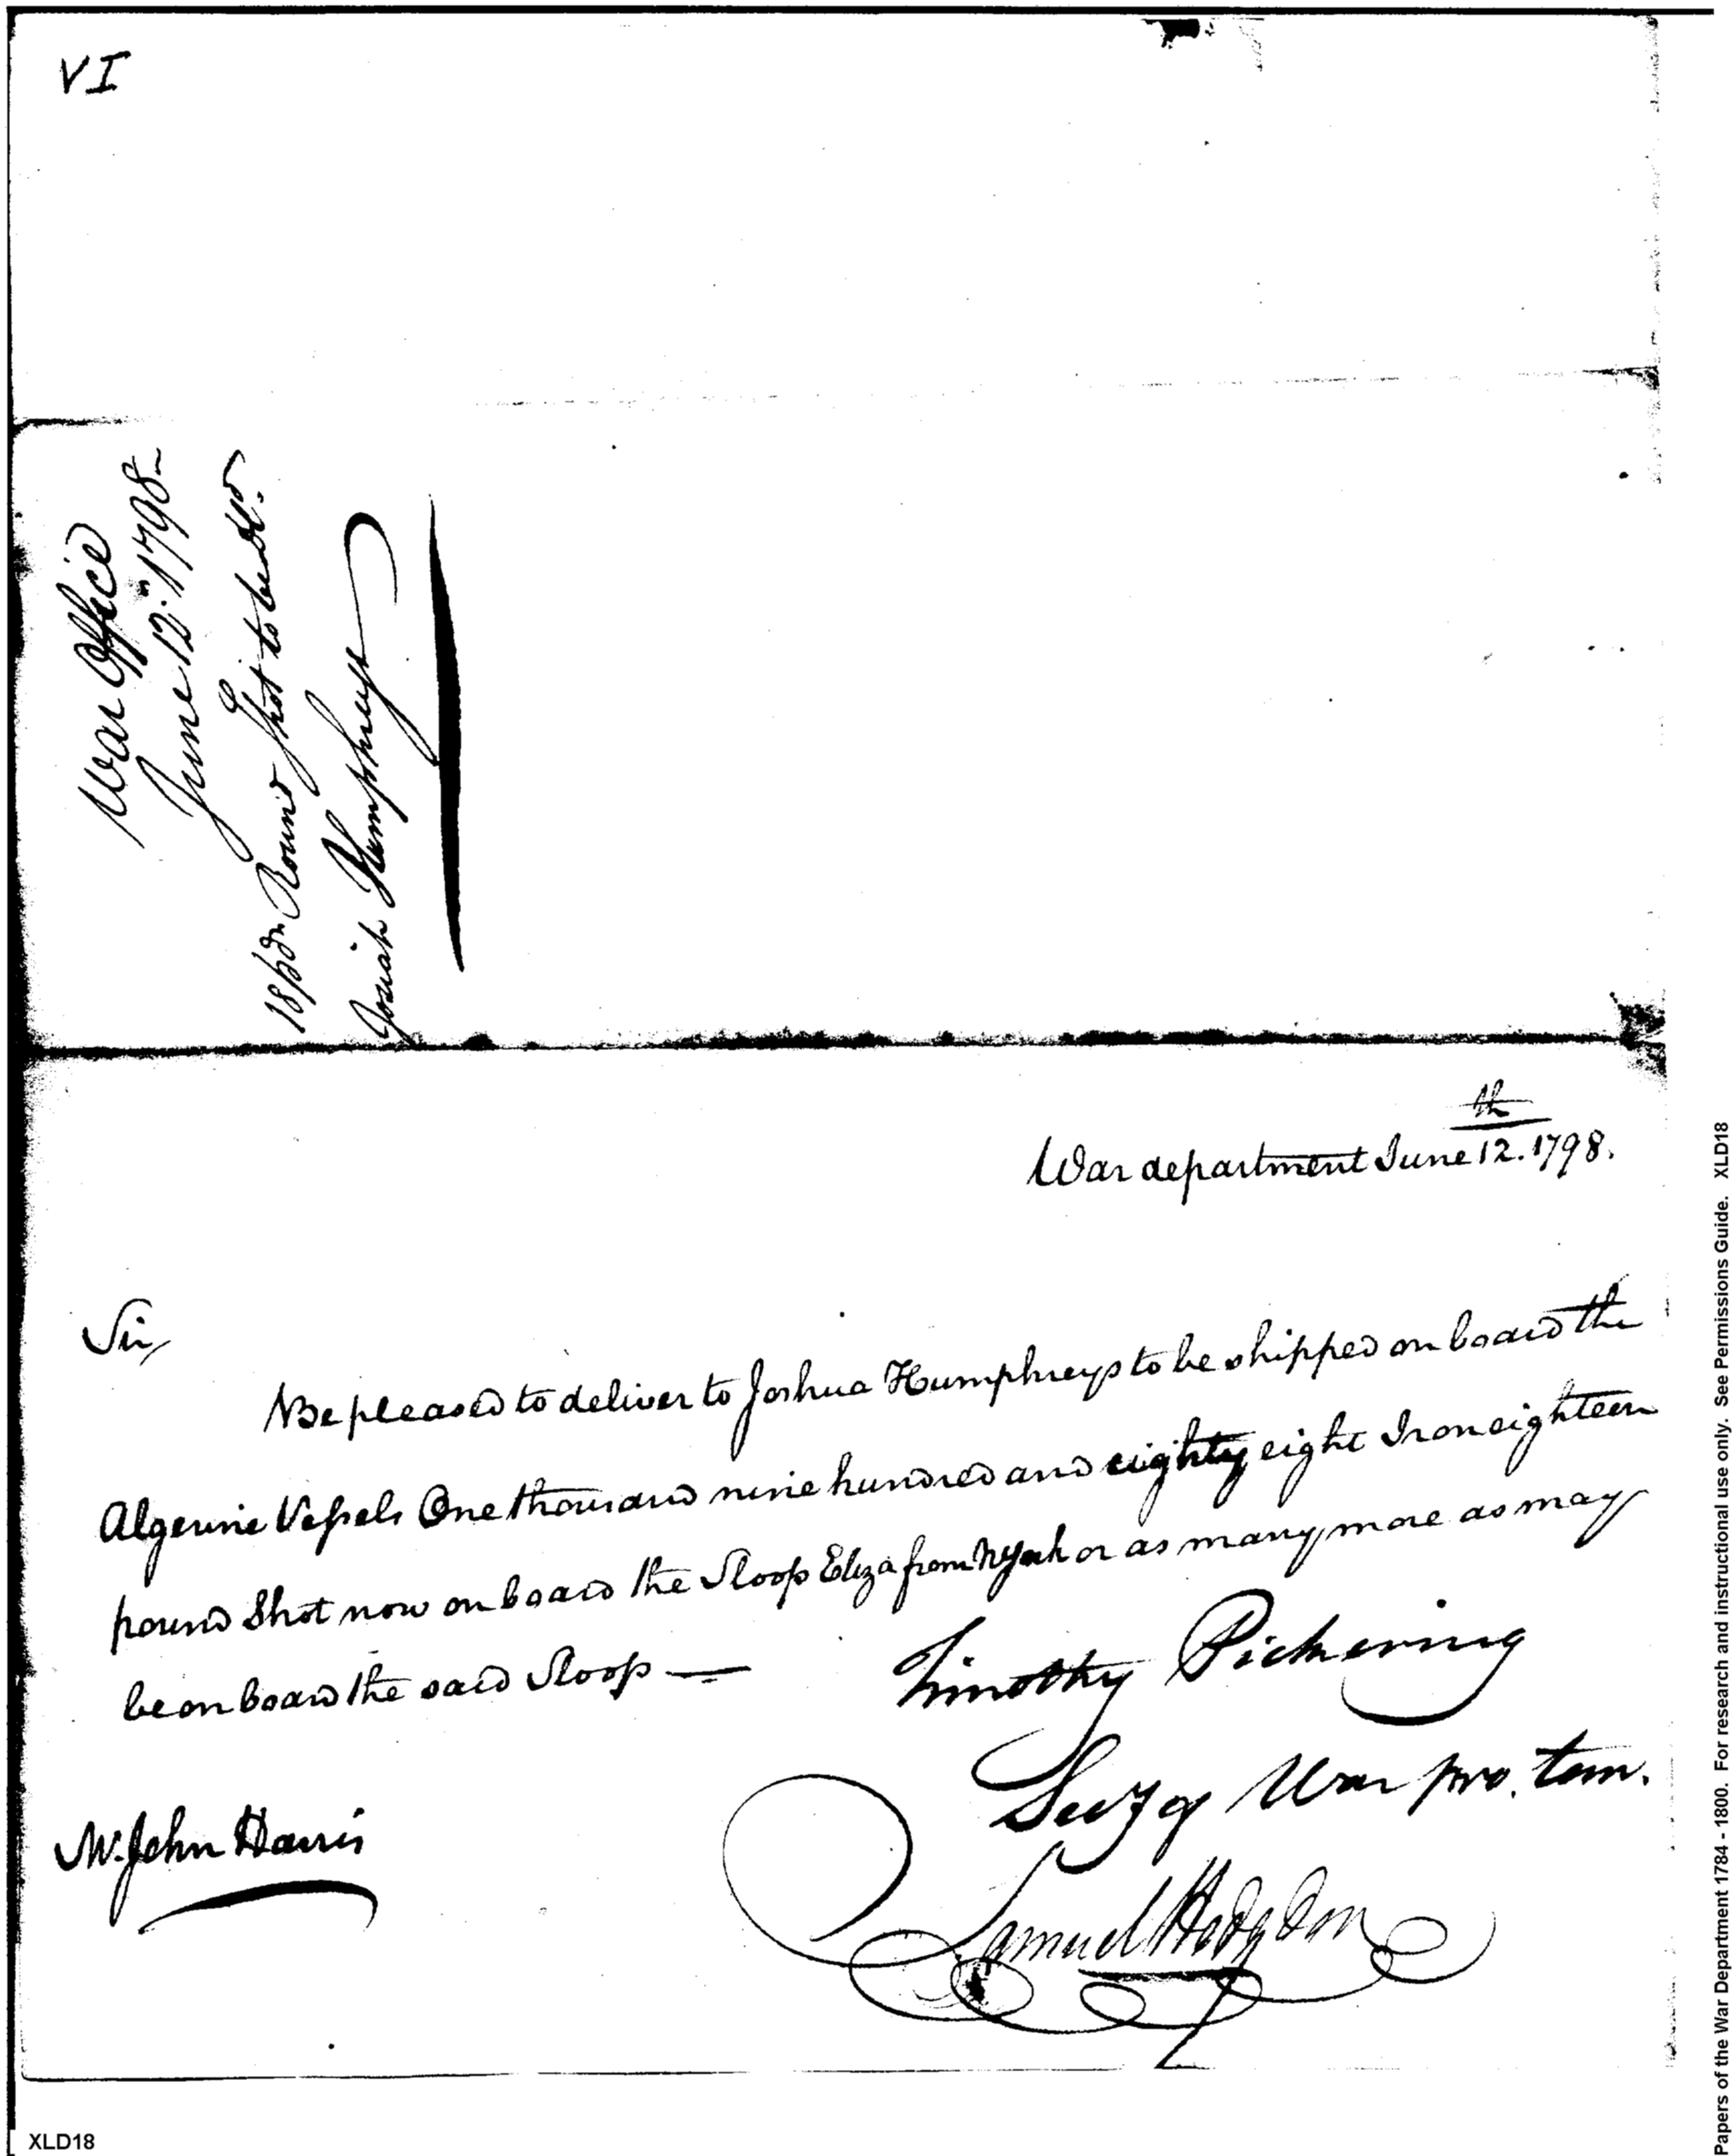 VI
War Office
June 12th. 1798
18 pdr Round Shot to be dd.
Josiah Humphreys
War department June 12th. 1798.
Sir,
Be pleased to deliver to Joshua Humphreys to be shipped on board the
Algerine Vessels One thousand nine hundred and eighty eight Iron eighteen
pound Shot now on board the Sloop Eliza from NYork or as many more as may
be on board the said Sloop —
Timothy Pickering
Secy of War pro. tem.
Mr. John Harris
Samuel Hodgdon
XLD18
Papers of the War Department 1784 - 1800. For research and instructional use only. See Permissions Guide. XLD18